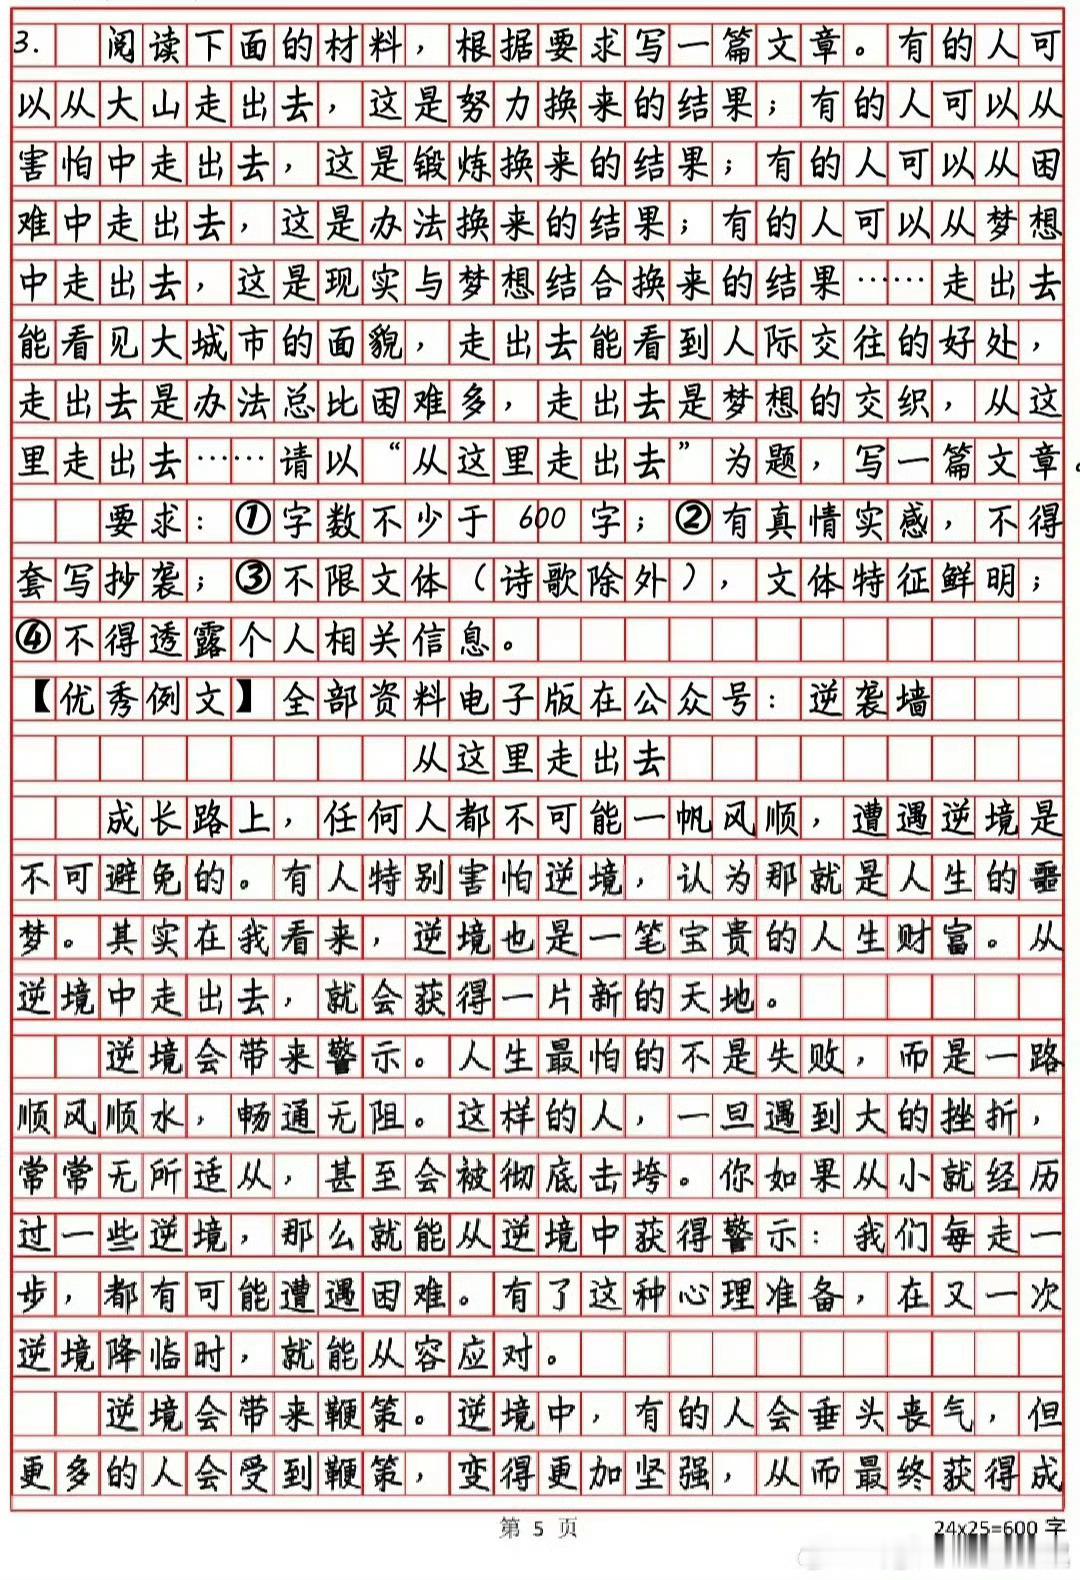 3.  阅读下面的材料，根据要求写一篇文章。有的人可
以从大山走出去，这是努力换来的结果；有的人可以从
害怕中走出去，这是锻炼换来的结果；有的人可以从困
难中走出去，这是办法换来的结果；有的人可以从梦想
中走出去，这是现实与梦想结合换来的结果……走出去
能看见大城市的面貌，走出去能看到人际交往的好处，
走出去是办法总比困难多，走出去是梦想的交织，从这
里走出去……请以“从这里走出去”为题，写一篇文章。
要求：①字数不少于600字；②有真情实感，不得
套写抄袭；③不限文体（诗歌除外），文体特征鲜明；
④不得透露个人相关信息。
【优秀例文】全部资料电子版在公众号：逆袭墙
从这里走出去
成长路上，任何人都不可能一帆风顺，遭遇逆境是
不可避免的。有人特别害怕逆境，认为那就是人生的噩
梦。其实在我看来，逆境也是一笔宝贵的人生财富。从
逆境中走出去，就会获得一片新的天地。
逆境会带来警示。人生最怕的不是失败，而是一路
顺风顺水，畅通无阻。这样的人，一旦遇到大的挫折，
常常无所适从，甚至会被彻底击垮。你如果从小就经历
过一些逆境，那么就能从逆境中获得警示：我们每走一
步，都有可能遭遇困难。有了这种心理准备，在又一次
逆境降临时，就能从容应对。
逆境会带来鞭策。逆境中，有的人会垂头丧气，但
更多的人会受到鞭策，变得更加坚强，从而最终获得成
第 5 页
24x25=600 字